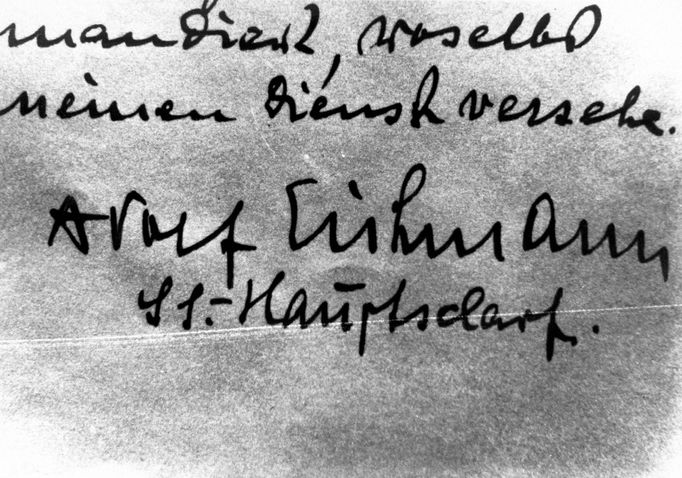 mandiert, woselbst
meinen Dienst versehe.
Adolf Eichmann
SS.-Hauptscharf.